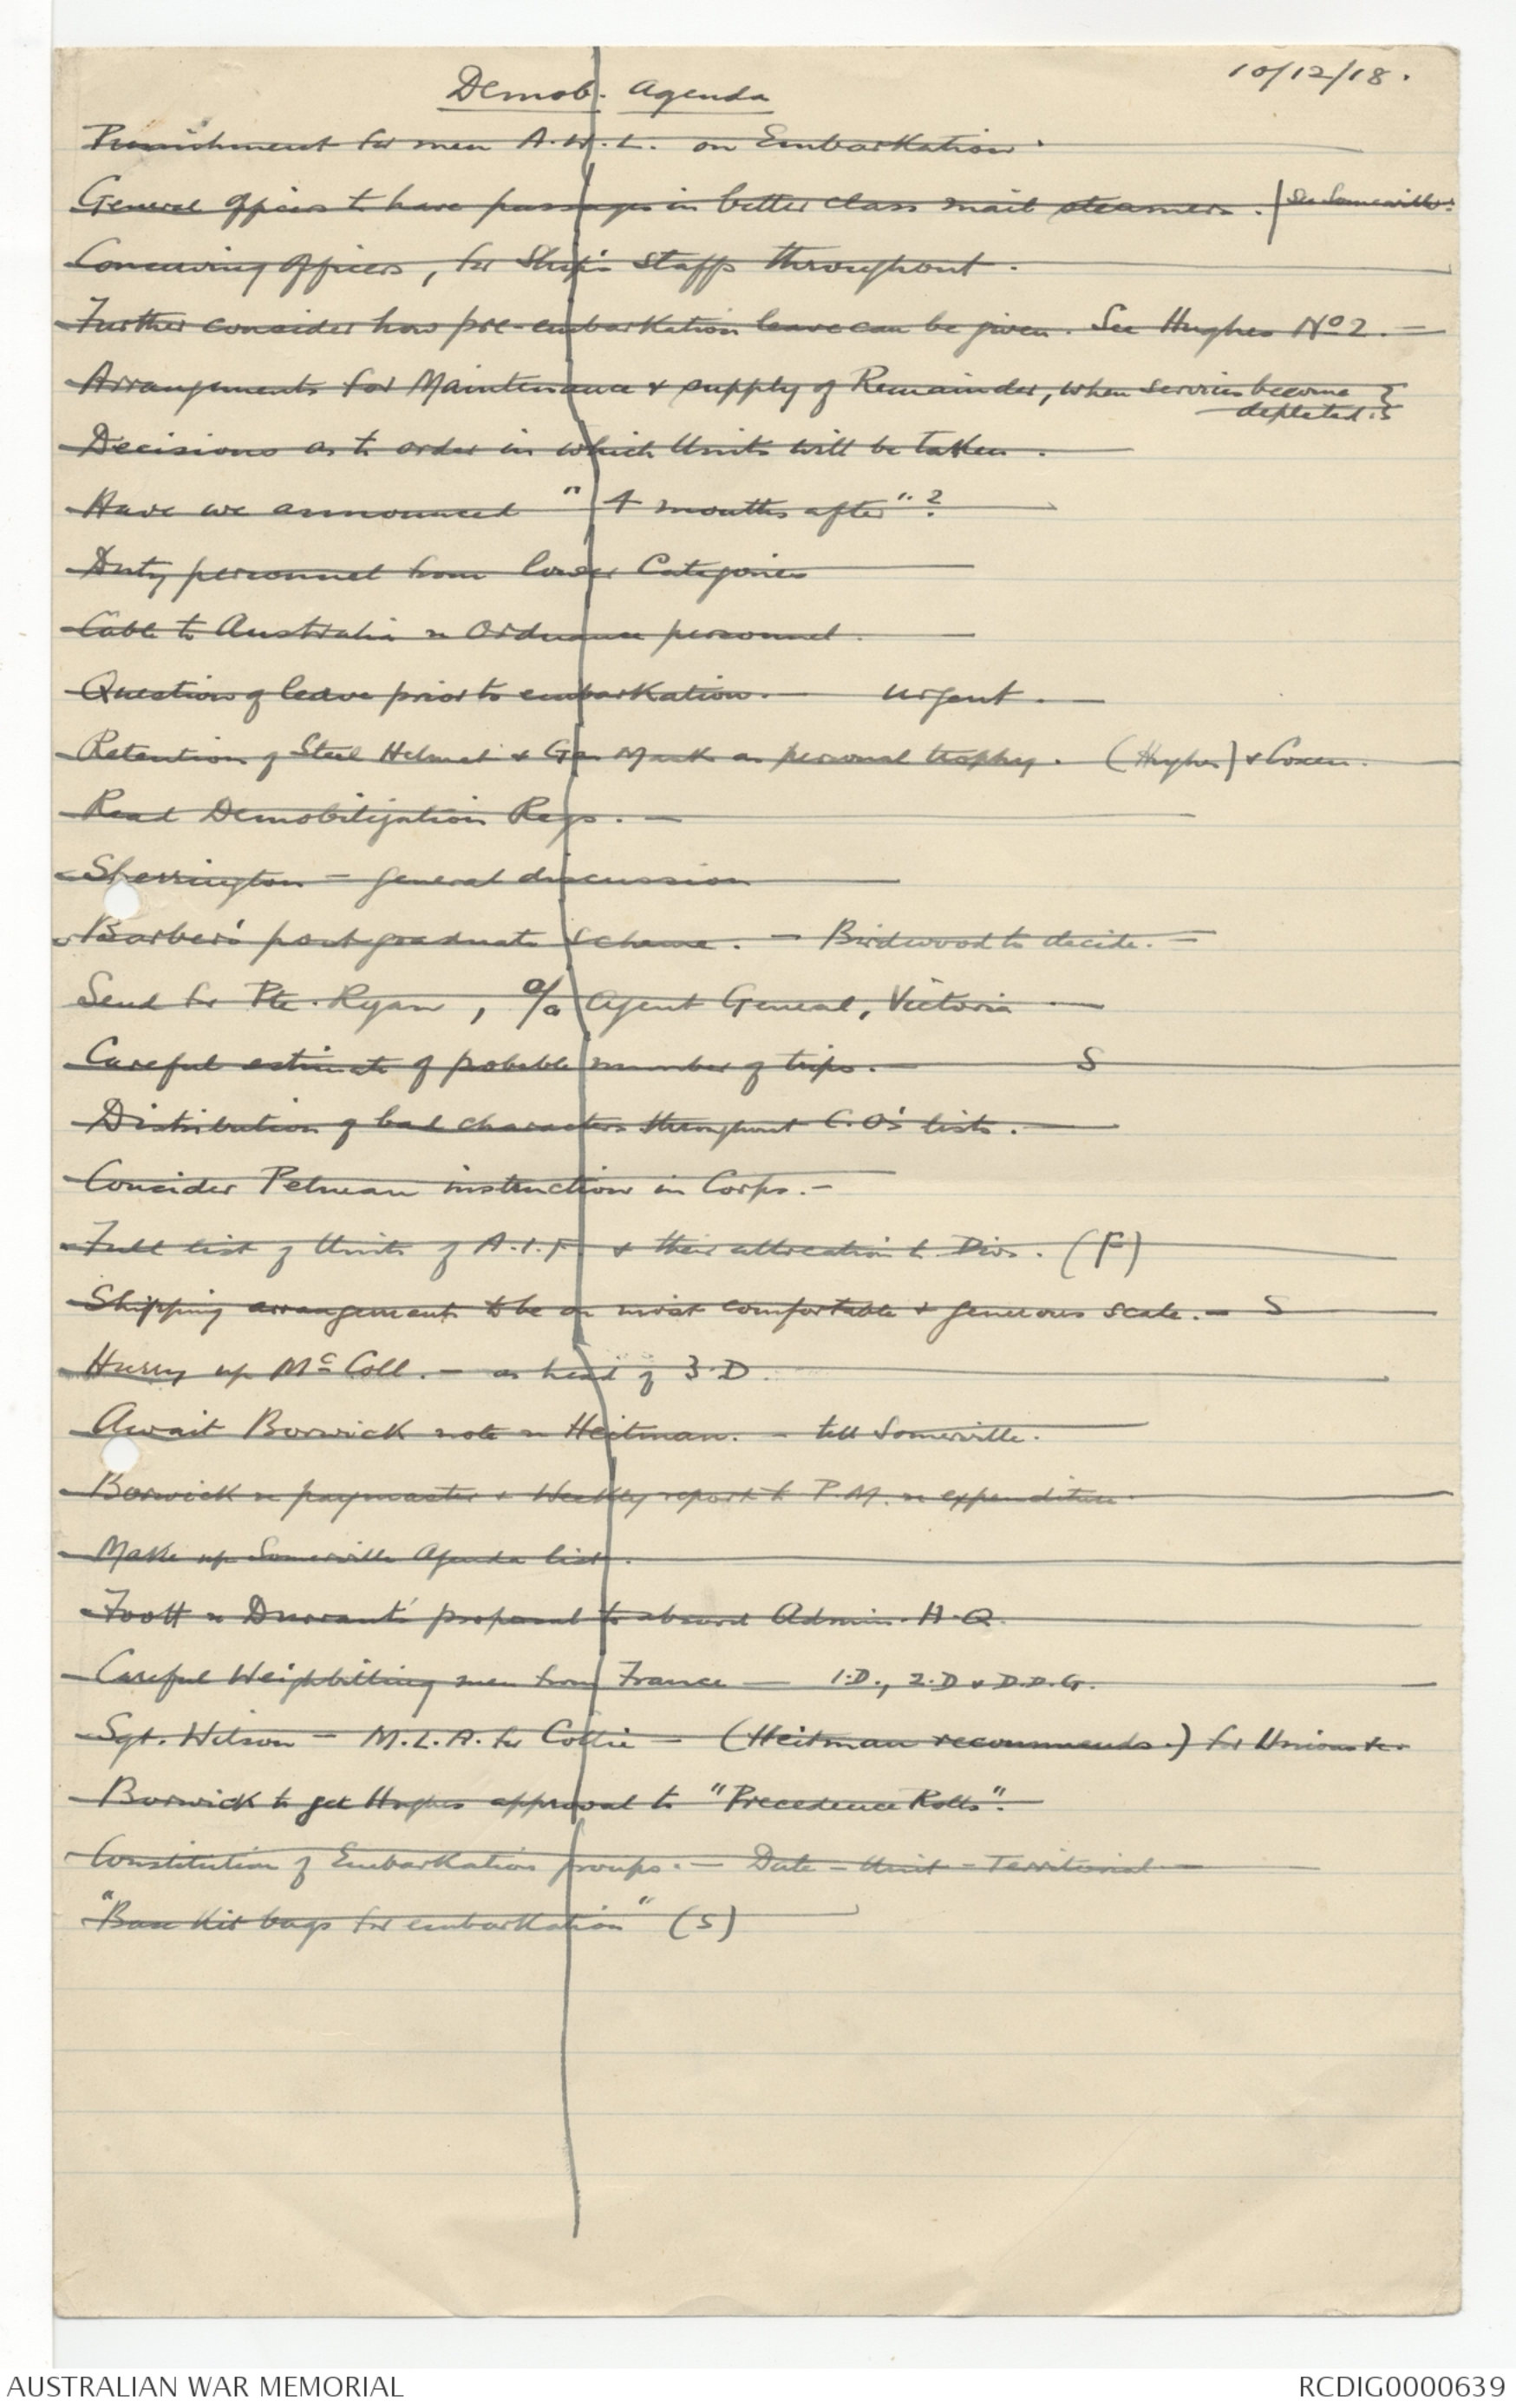 10/12/18.
Demob. Agenda
Punishment for men A.W.L. on Embarkation.
General Officers to have passages in better class mail steamers. See Somerville.
Conserving Officers, for Ship's Staffs throughout.
Further consider how pre-embarkation leave can be given. See Hughes No 2. —
Arrangements for Maintenance & supply of Remainder, when services become
depleted.
Decisions as to order in which Units will be taken.
Have we announced "4 months after"?
Duty personnel from lower Categories
Cable to Australia re Ordnance personnel.
Question of leave prior to embarkation. — urgent. —
Retention of Steel Helmet & Gas Mask as personal trophy. (Hughes) & Coxen.
Read Demobilization Regs. —
Sherrington — general discussion
Barber's post graduate scheme. — Birdwood to decide. —
Send for Pte. Ryan, a/a Agent General, Victoria —
Careful estimate of probable number of trips. — S
Distribution of bad characters throughout C.O's lists. —
Consider Pelman instruction in Corps. —
Full list of Units of A.I.F. & their allocation to Divs. (F)
Shipping arrangements to be on most comfortable & generous scale. — S
Hurry up McColl. — as head of 3.D.
Await Borwick note re Heitman. — tell Somerville.
Borwick re paymaster & Weekly report to P.M. re expenditure.
Make up Somerville Agenda list.
Foott re Durrant's proposal to absorb Admin. H.Q.
Careful Weighbilling men from France — 1.D., 2.D & D.D.G.
Sgt. Wilson — M.L.A. for Collie — (Heitman recommends.) for Unions &c.
Borwick to get Hughes approval to "Precedence Rolls".
Constitution of Embarkation groups. — Date — Unit — Territorial —
"Base Kit bags for embarkation" (S)
AUSTRALIAN WAR MEMORIAL
RCDIG0000639